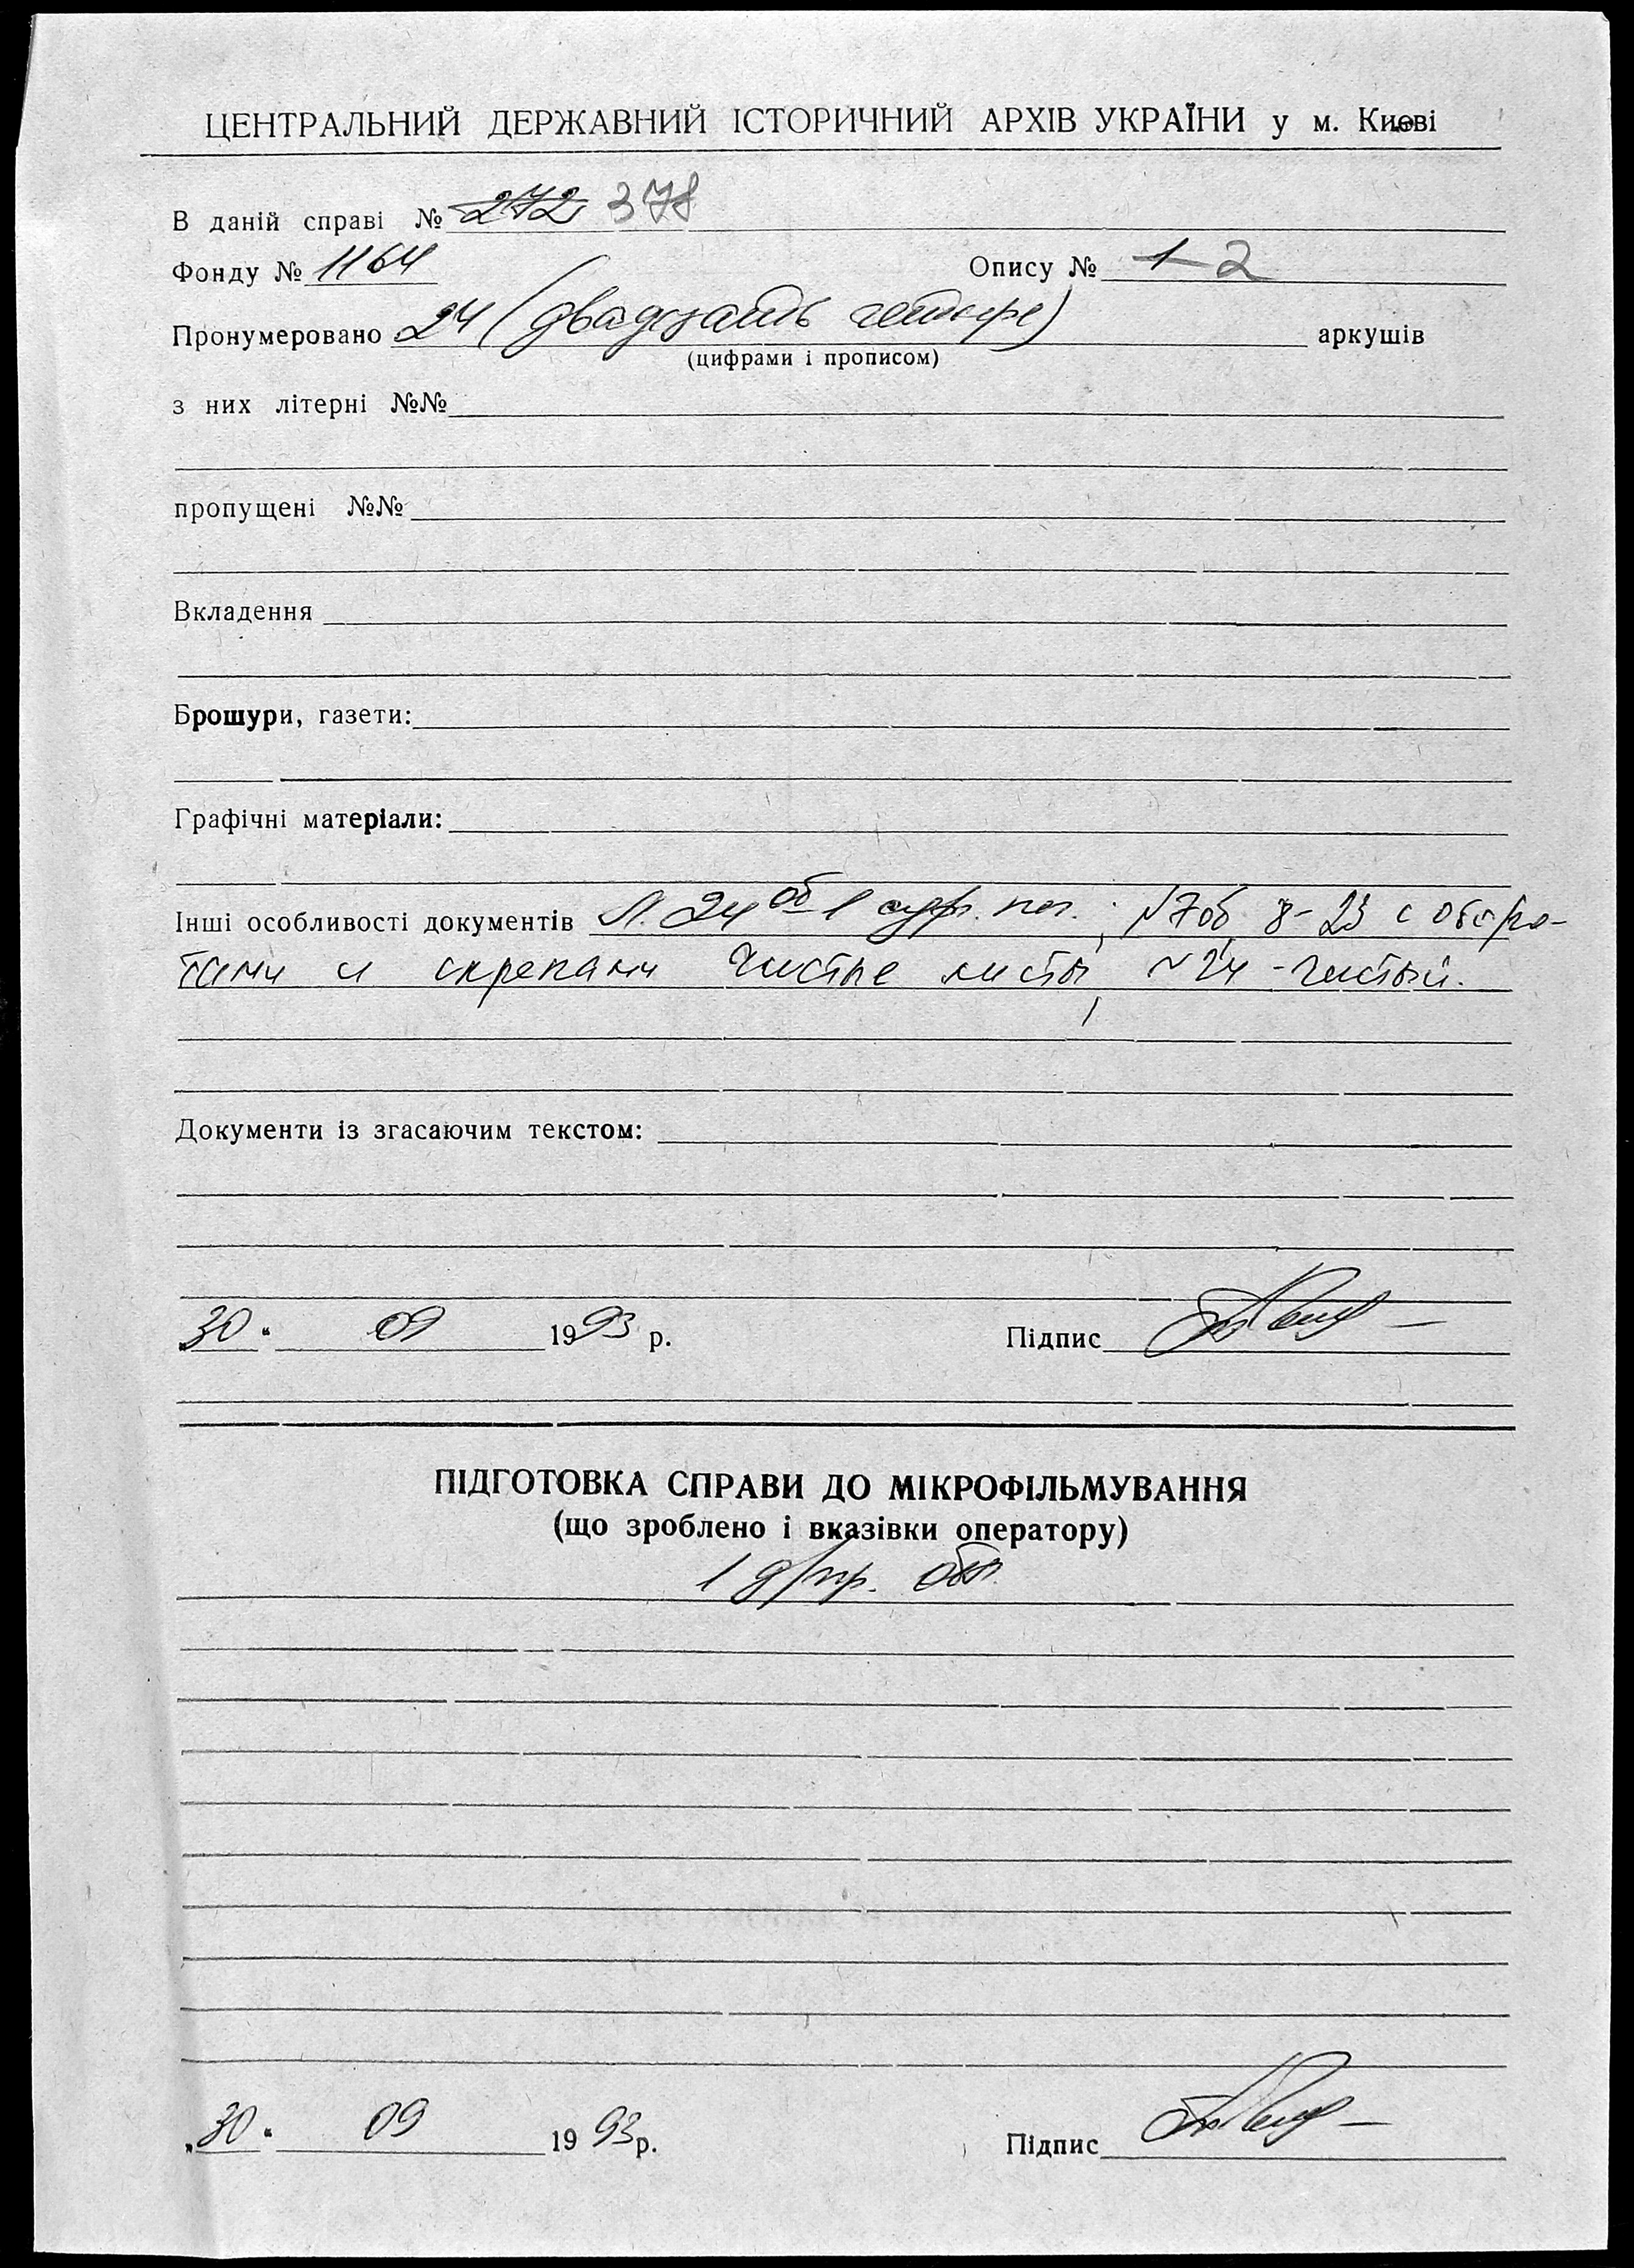 ЦЕНТРАЛЬНИЙ ДЕРЖАВНИЙ ІСТОРИЧНИЙ АРХІВ УКРАЇНИ у м. Києві
В даній справі № 272 378
Фонду № 1164 Опису № 1 2
Пронумеровано 24 (двадцать четыре) аркушів
(цифрами і прописом)
з них літерні №№
пропущені №№
Вкладення
Брошури, газети:
Графічні матеріали:
Інші особливості документів Л. 24 об 1 сург. печ.; №7об, 8-23 с оборо-
тами и скрепами чистые листы, №24 - чистый.
Документи із згасаючим текстом:
30 " 09 1993 р. Підпис
ПІДГОТОВКА СПРАВИ ДО МІКРОФІЛЬМУВАННЯ
(що зроблено і вказівки оператору)
1
„30 " 09 1993р. Підпис